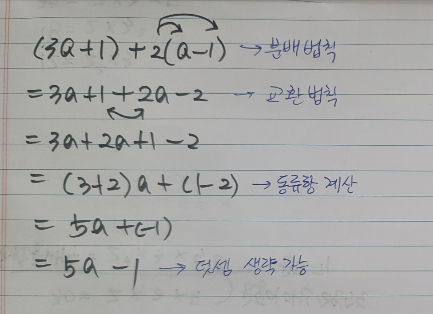 (3a+1)+2(a-1) → 분배법칙
= 3a+1+2a-2 → 교환법칙
= 3a+2a+1-2
= (3+2)a+(1-2) → 동류항 계산
= 5a+(-1)
= 5a-1 → 덧셈 생략 가능